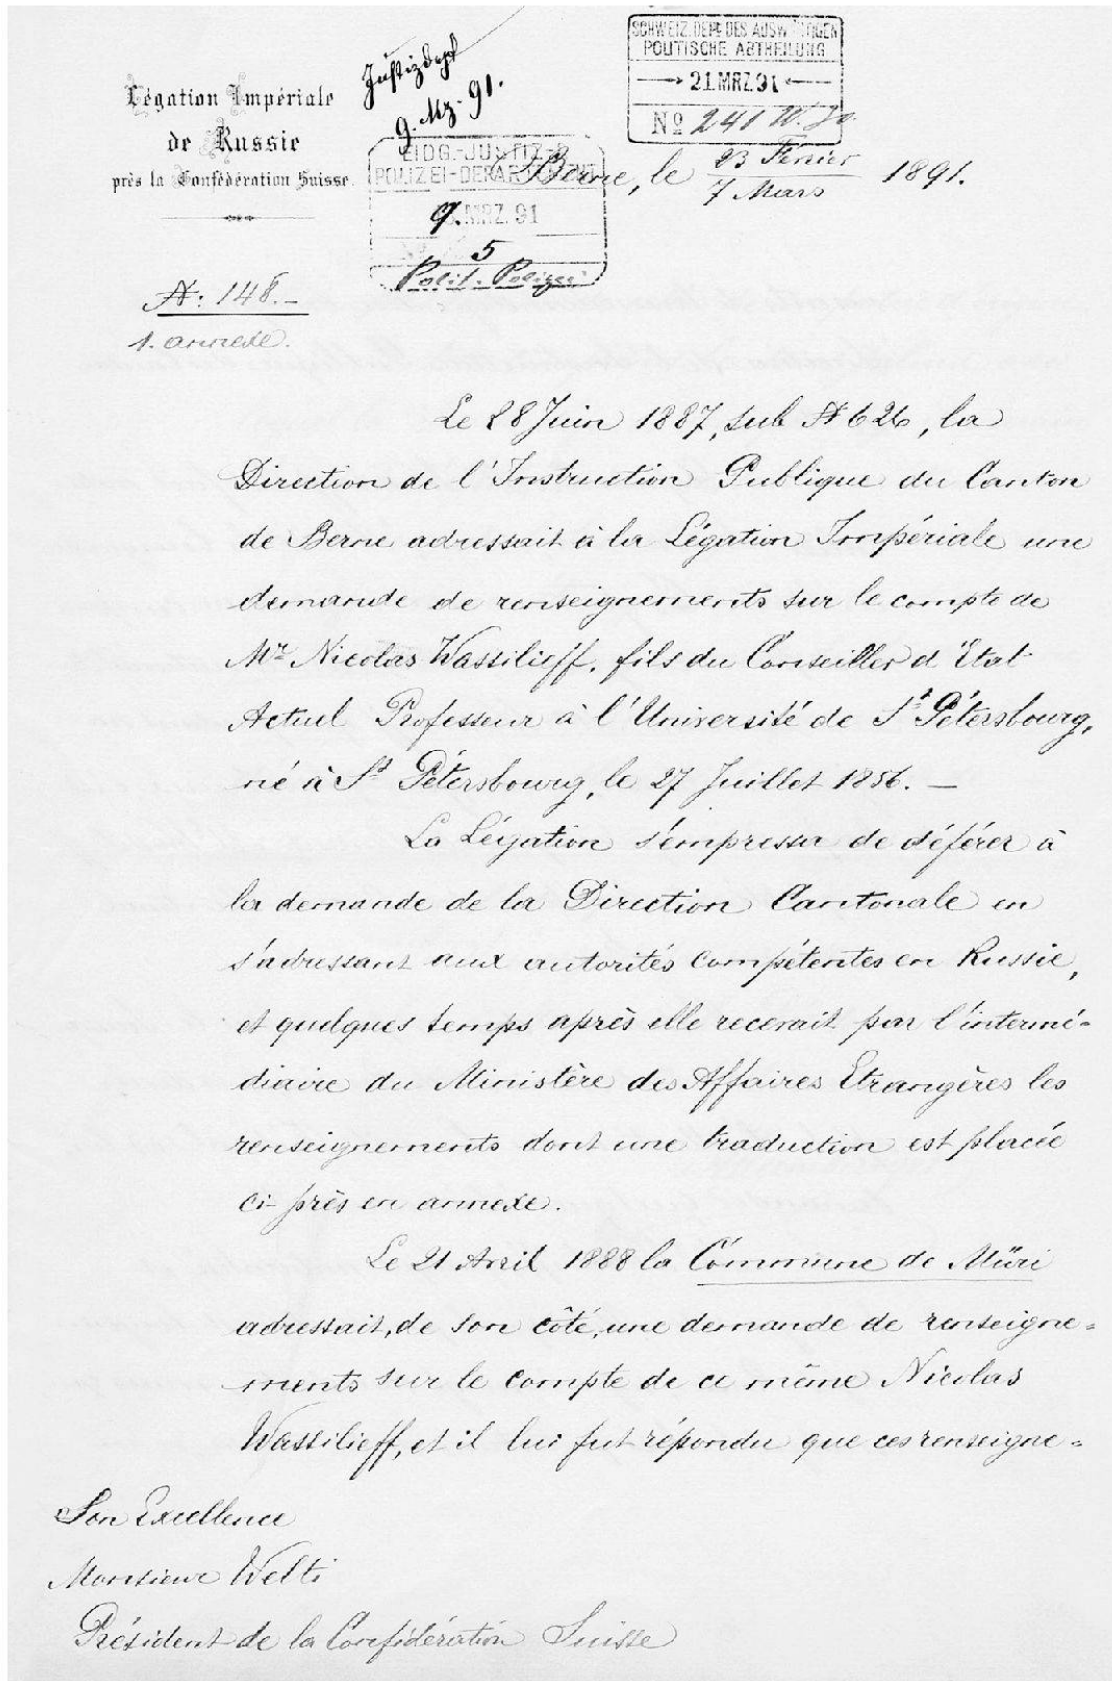 Légation Impériale
de Russie
près la Confédération Suisse.
Justizdept
9. Mz. 91.
SCHWEIZ. DEPT. DES AUSWÄRTIGEN
POLITISCHE ABTHEILUNG
21. MRZ. 91
No 241
EIDG. JUSTIZ- &
POLIZEI-DEPARTEMENT
9. MRZ. 91
5
Polit. Polizei
Berne, le 23 Février / 7 Mars 1891.
N: 148.-
1. annexe.
Le 28 Juin 1887, sub N 626, la
Direction de l'Instruction Publique du Canton
de Berne adressait à la Légation Impériale une
demande de renseignements sur le compte de
Mr Nicolas Wassilieff, fils du Conseiller d'Etat
Actuel Professeur à l'Université de St Pétersbourg,
né à St Pétersbourg, le 27 Juillet 1856. —
La Légation s'empressa de déférer à
la demande de la Direction Cantonale en
s'adressant aux autorités compétentes en Russie,
et quelques temps après elle recevait par l'intermé-
diaire du Ministère des Affaires Etrangères les
renseignements dont une traduction est placée
ci-près en annexe.
Le 21 Avril 1888 la Commune de Müri
adressait, de son côté, une demande de renseigne-
ments sur le compte de ce même Nicolas
Wassilieff, et il lui fut répondu que ces renseigne-
Son Excellence
Monsieur Welti
Président de la Confédération Suisse